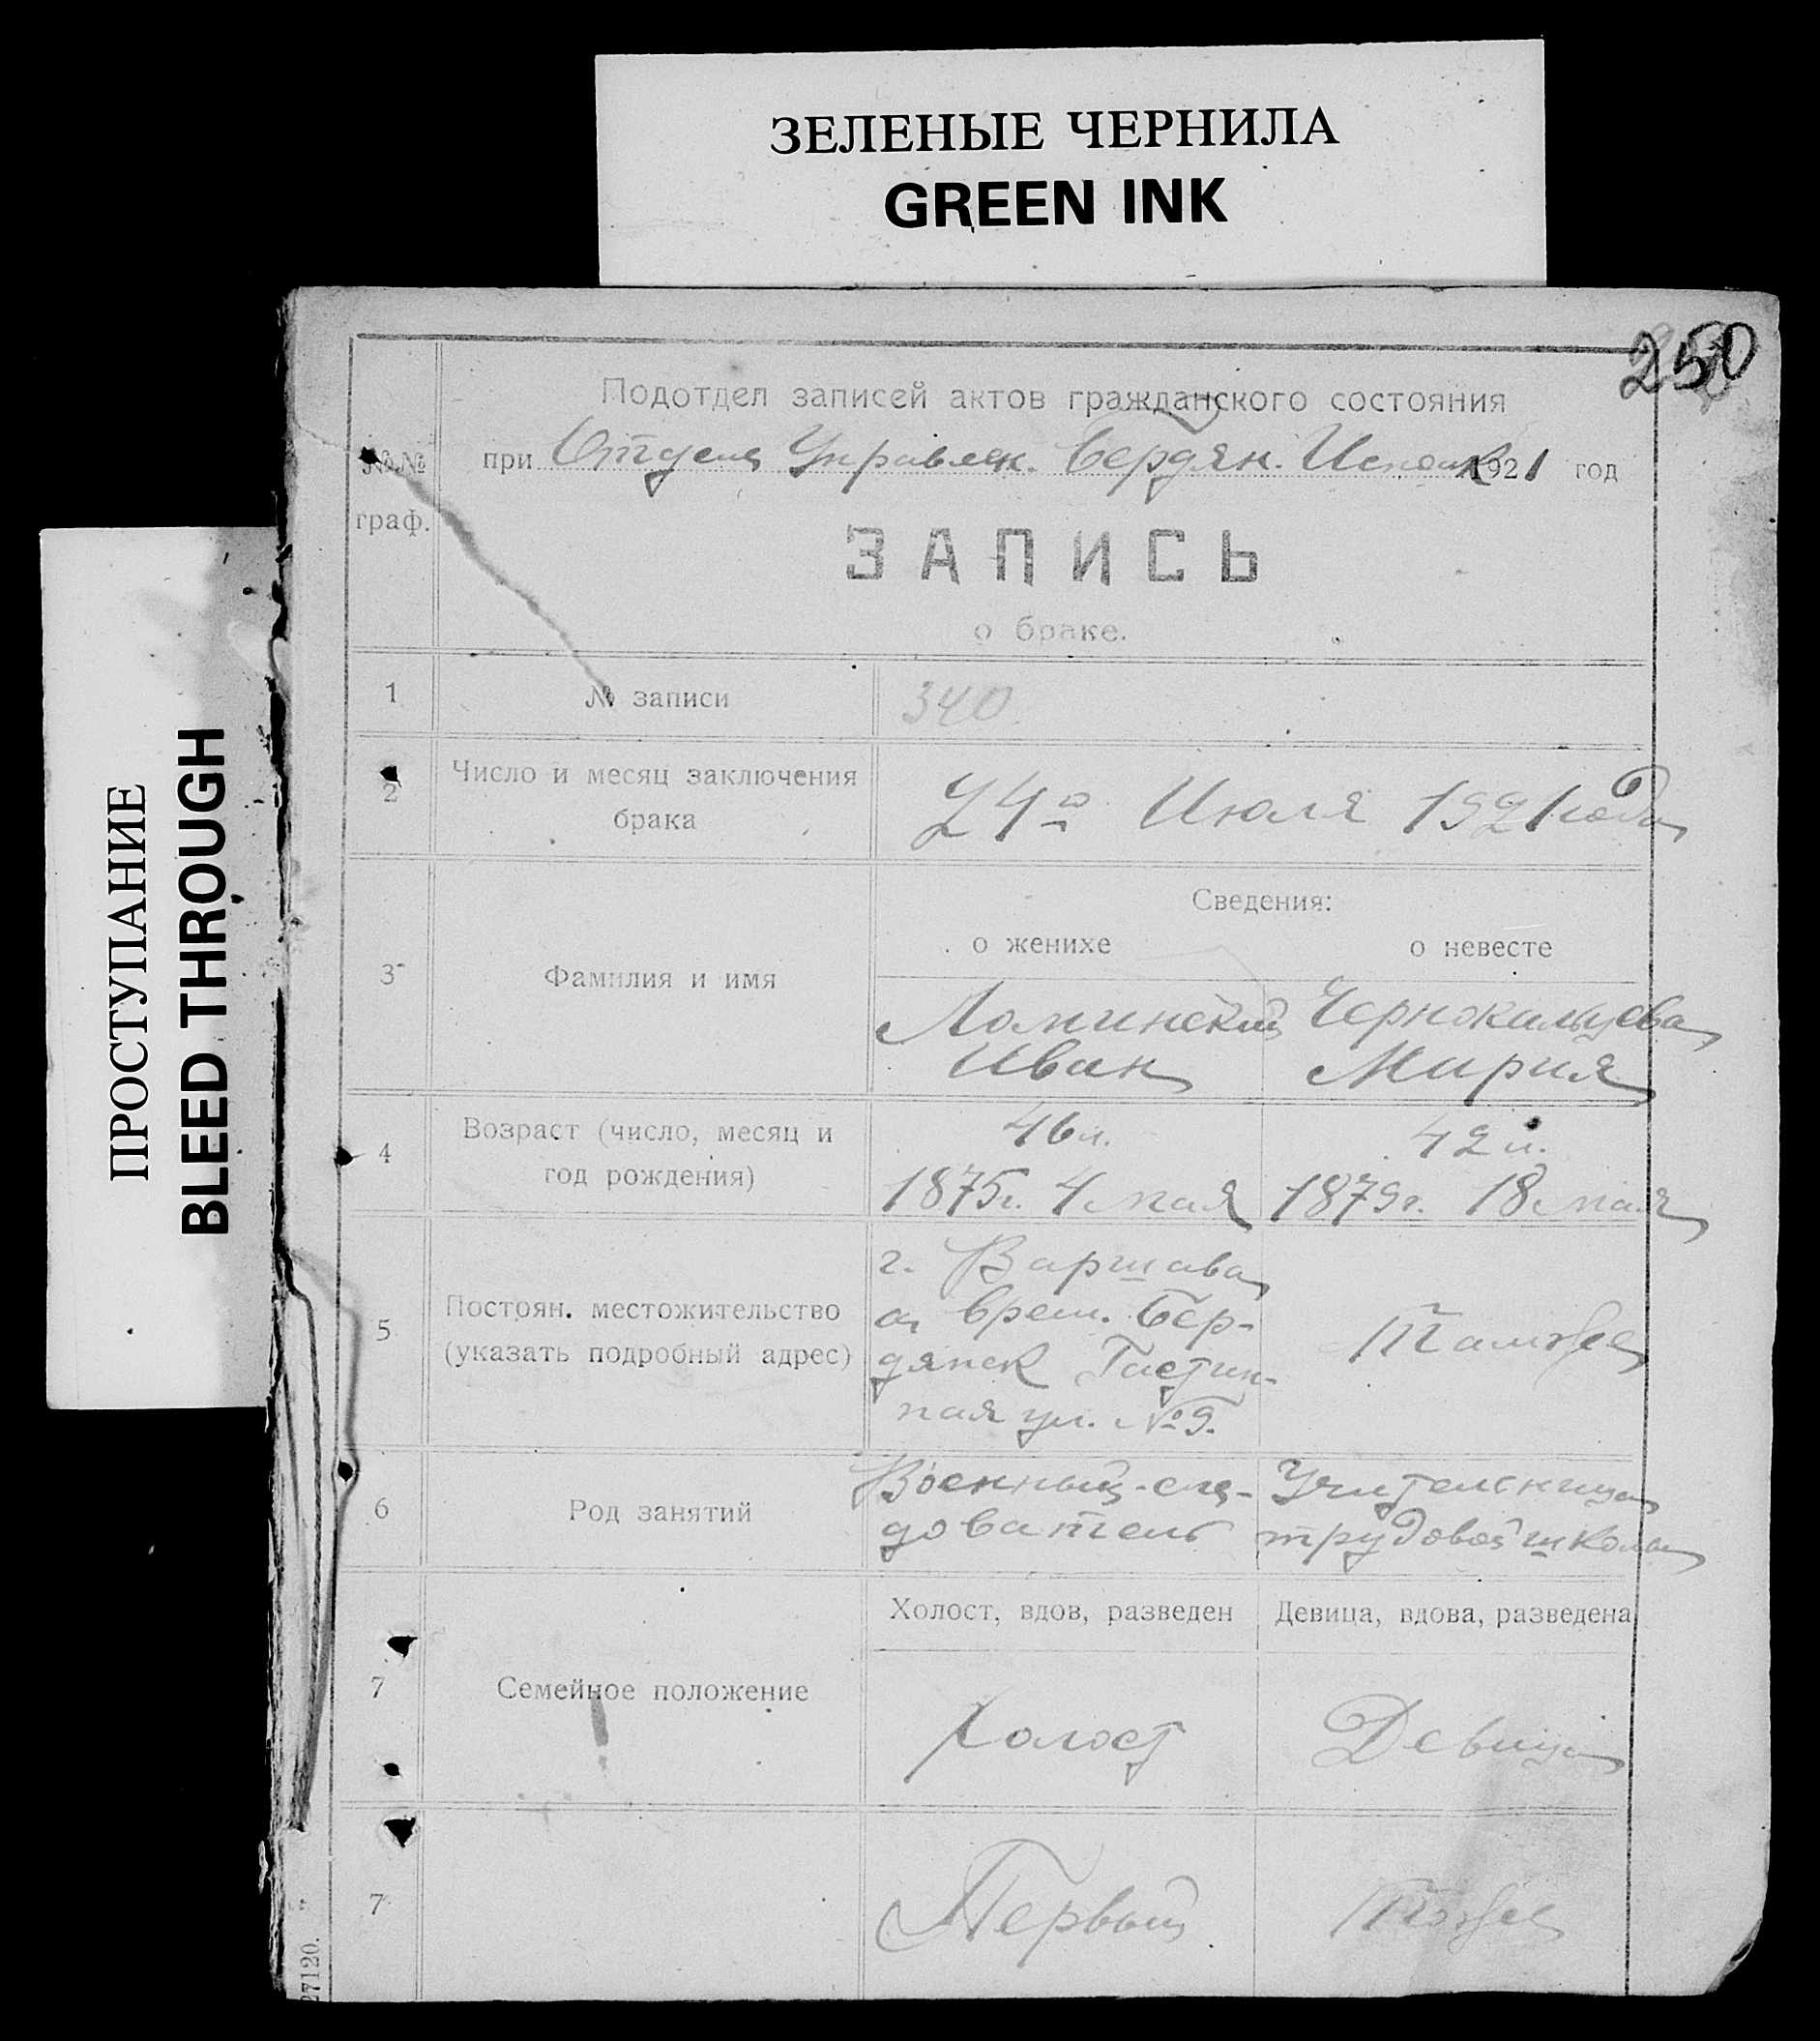 ЗЕЛЕНЫЕ ЧЕРНИЛА
GREEN INK
ПРОСТУПАНИЕ
BLEED THROUGH
250
Подотдел записей актов гражданского состояния
№№ граф.
при Отделе Управлен. Бердян. Исполк 1921 год
ЗАПИСЬ
о браке.
1 № записи 340
2 Число и месяц заключения брака 24го Июля 1921 года
Сведения:
о женихе о невесте
3 Фамилия и имя
Ломинский Чернокальцева
Иван Мария
4 Возраст (число, месяц и год рождения)
46 л. 42 л.
1875г. 4 мая 1879г. 18 мая
5 Постоян. местожительство (указать подробный адрес)
г. Варшава
а врем. Бер-
дянск Гостин-
ная ул. №9.
Там же
6 Род занятий
Военный-сле-
дователь
Учительница
трудовой школы
Холост, вдов, разведен Девица, вдова, разведена
7 Семейное положение
Холост Девица
7 Первый Тоже
27120.